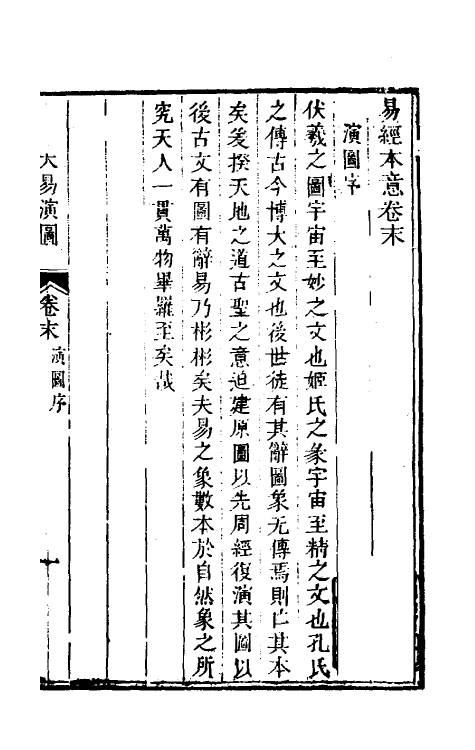 易經本意卷末
演圖序
伏羲之圖宇宙至妙之文也姬氏之彖宇宙至精之文也孔氏
之傳古今博大之文也後世徒有其辭圖象无傳焉則亡其本
矣爰揆天地之道古聖之意迫建原圖以先周經復演其圖以
後古文有圖有辭易乃彬彬矣夫易之象數本於自然象之所
究天人一貫萬物畢羅至矣哉
大易演圖
卷末
演圖序
一